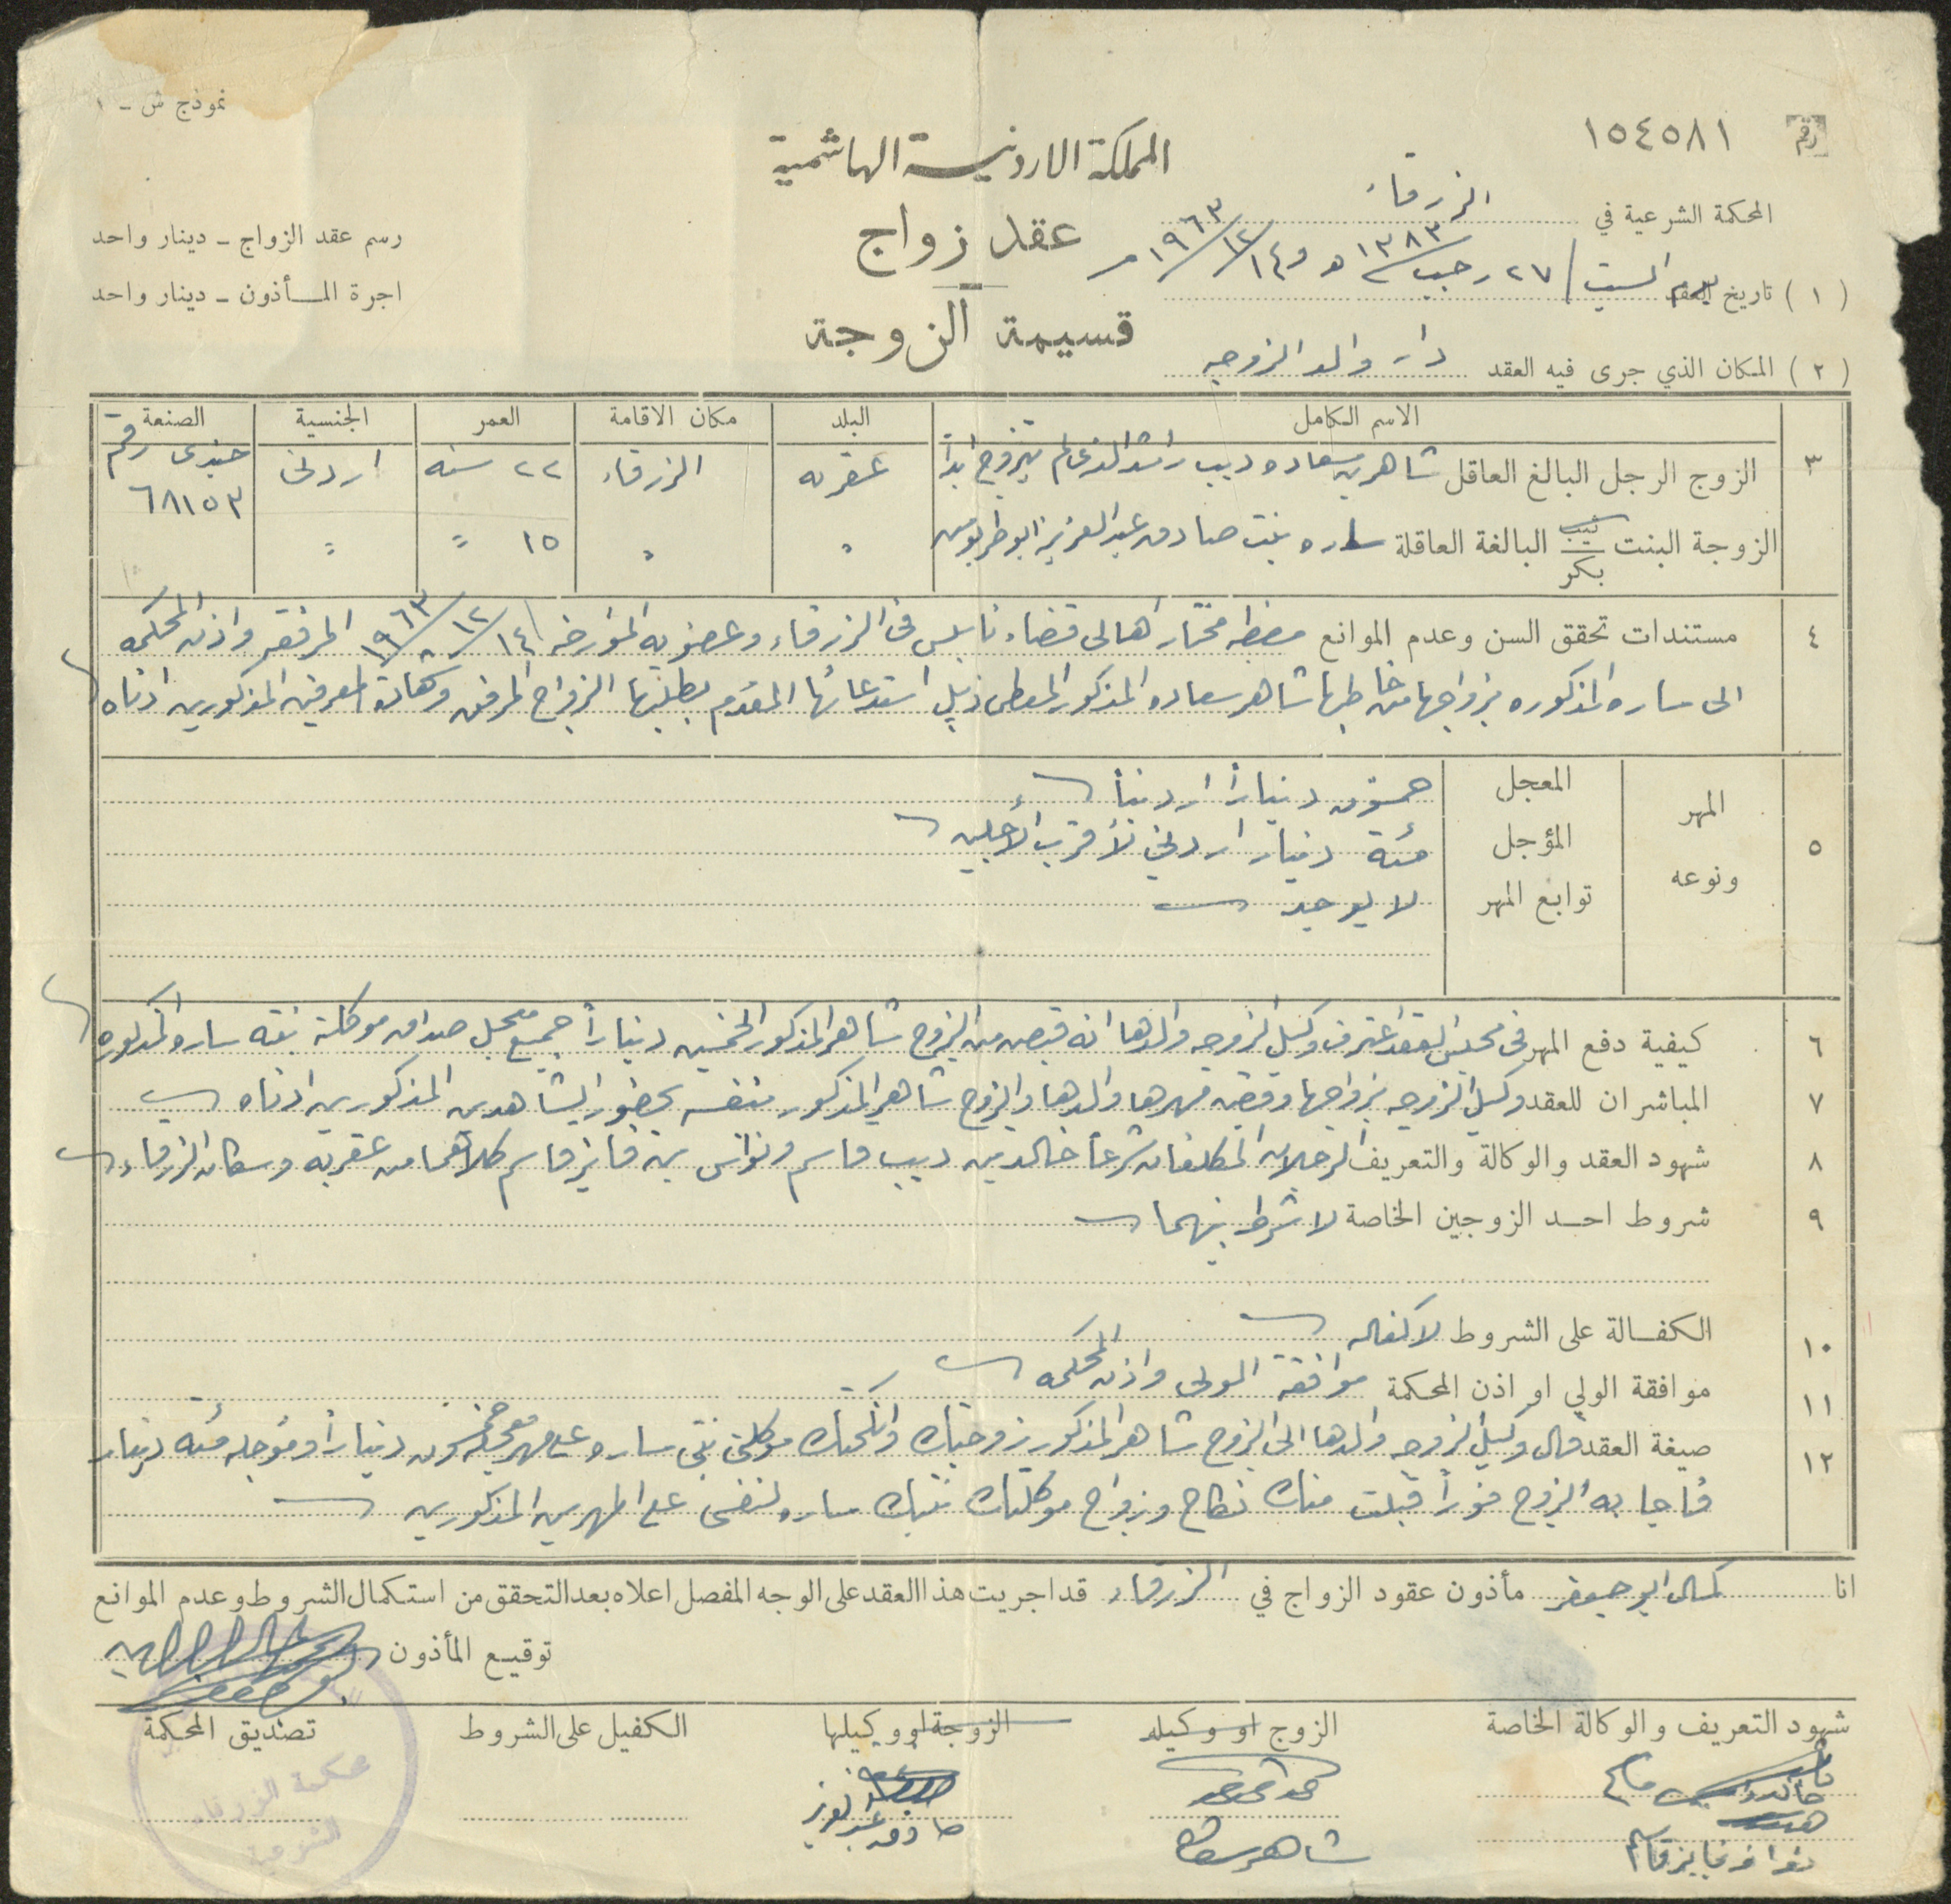 نموذج ش - ١
رقم ١٥٤٥٨١
المملكة الاردنيسة الهاشمية
المحكمة الشرعية في الزرقاء
عقد زواج
رسم عقد الزواج - دينار واحد
( ١ ) تاريخ العقد يوم السبت / ٢٧ رجب / ١٣٨٣ هـ و ١٤ / ١٢ / ١٩٦٣ م
اجرة المأذون - دينار واحد
قسيمة الزوجة
( ٢ ) المكان الذي جرى فيه العقد دار والد الزوجه
الاسم الكامل البلد مكان الاقامة العمر الجنسية الصنعة
٣ الزوج الرجل البالغ العاقل شاهر بن سعاده ديب راشد الذي لم يتزوج ابداً عقربه الزرقاء ٢٢ سنه اردني جندى رقم ٦٨١٥٣
الزوجة البنت ثيب بكر البالغة العاقلة ساره بنت صادق عبد العزيز ابو طربوش " " ١٥ " "
٤ مستندات تحقق السن وعدم الموانع مضبطه مختار اهالى قضاء نابلس فى الزرقاء وعضويه المؤرخه ١٤ / ١٢ / ١٩٦٣ المرفقه واذن المحكمه
الى ساره المذكوره بزواجها من خاطبها شاهر سعاده المذكور المعطى ذيل استدعائها المقدم بطلبها الزواج المرفق وشهادة المعرفين المذكورين ادناه
٥ المهر ونوعه
المعجل خمسون ديناراً اردنياً
المؤجل مئة دينار اردني لأقرب الأجلين
توابع المهر لا يوجد
٦ كيفية دفع المهر فى مجلس العقد اعترف وكيل الزوجه والدها انه قبض من الزوج شاهر المذكور الخمسين ديناراً جميع معجل صداق موكلته بنته ساره المذكوره
٧ المباشران للعقد وكيل الزوجه بزواجها وقبض مهرها والدها والزوج شاهر المذكور بنفسه بحضور الشاهدين المذكورين ادناه
٨ شهود العقد والوكالة والتعريف الرجلان المكلفان شرعاً خالد بن ديب قاسم ونواش بن فايز قاسم كلاهما من عقربه وسكان الزرقاء
٩ شروط احد الزوجين الخاصة لا شرط بينهما
١٠ الكفالة على الشروط لا كفاله
١١ موافقة الولي او اذن المحكمة موافقة الولى واذن المحكمه
١٢ صيغة العقد قال وكيل الزوجه والدها الى الزوج شاهر المذكور زوجتك وانكحتك موكلتى بنتى ساره على مهر معجله خمسون ديناراً ومؤجله مئة دينار
فاجابه الزوج فوراً قبلت منك نكاح وزواج موكلتك بنتك ساره لنفسى على المهرين المذكورين
انا كمال ابو جعفر مأذون عقود الزواج في الزرقاء قد اجريت هذا العقد على الوجه المفصل اعلاه بعد التحقق من استكمال الشروط وعدم الموانع
توقيع المأذون
شهود التعريف والوكالة الخاصة الزوج او وكيله الزوجة او وكيلها الكفيل على الشروط تصديق المحكمة
صادق عبد العزيز
شاهر سعاده
محكمة الزرقاء
الشرعية